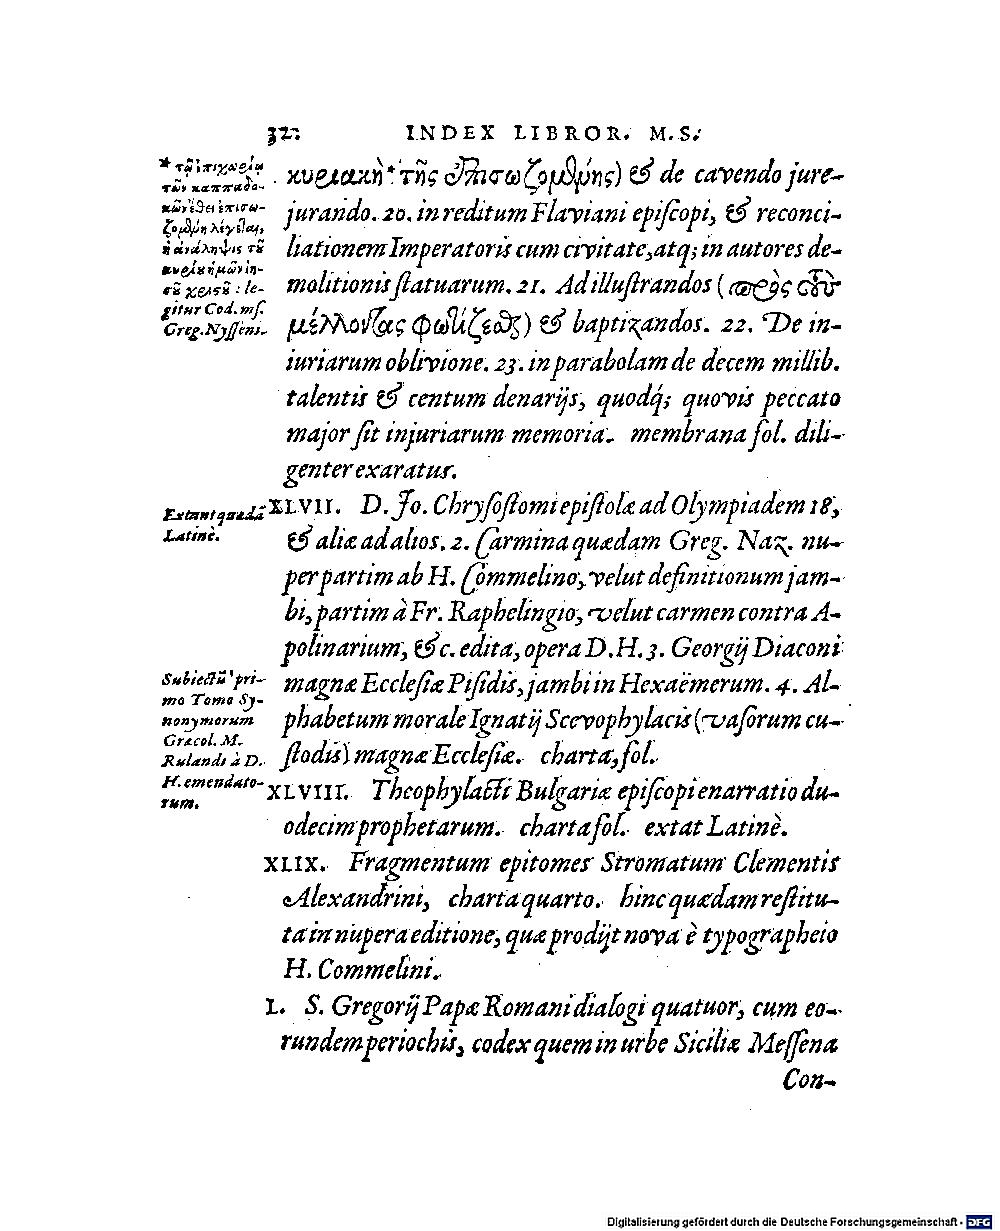 32.
INDEX LIBROR. M.S.
* τῇ ἐπιχωρίῳ
τῶν καππαδο-
κῶν ἔθει ἐπισω-
ζομένη λέγεται,
ἡ ἀνάληψις τοῦ
κυρίου ἡμῶν ἰη-
σοῦ χριστοῦ: le-
gitur Cod. ms.
Greg. Nysseni.
κυριακὴ * τῆς ἐπισωζομένης) & de cavendo jure-
jurando. 20. in reditum Flaviani episcopi, & reconci-
liationem Imperatoris cum civitate, atq; in autores de-
molitionis statuarum. 21. Ad illustrandos (πρὸς τοὺς
μέλλοντας φωτίζεσθαι) & baptizandos. 22. De in-
iuriarum oblivione. 23. in parabolam de decem millib.
talentis & centum denarijs, quodq́; quovis peccato
major sit injuriarum memoria. membrana fol. dili-
genter exaratus.
Extant quædã
Latinè.
XLVII. D. Jo. Chrysostomi epistolæ ad Olympiadem 18,
& aliæ ad alios. 2. Carmina quædam Greg. Naz. nu-
per partim ab H. Commelino, velut definitionum jam-
bi, partim à Fr. Raphelingio, velut carmen contra A-
polinarium, &c. edita, opera D. H. 3. Georgij Diaconi
magnæ Ecclesiæ Pisidis, jambi in Hexaëmerum. 4. Al-
phabetum morale Ignatij Scevophylacis (vasorum cu-
stodis) magnæ Ecclesiæ. charta, fol.
Subiectũ pri-
mo Tomo Sy-
nonymorum
Græcol. M.
Rulandi à D.
H. emendato-
rum.
XLVIII. Theophylacti Bulgariæ episcopi enarratio du-
odecim prophetarum. charta fol. extat Latinè.
XLIX. Fragmentum epitomes Stromatum Clementis
Alexandrini, charta quarto. hinc quædam restitu-
ta in nupera editione, quæ prodijt nova è typographeio
H. Commelini.
L. S. Gregorij Papæ Romani dialogi quatuor, cum eo-
rundem periochis, codex quem in urbe Siciliæ Messena
Con-
Digitalisierung gefördert durch die Deutsche Forschungsgemeinschaft - DFG